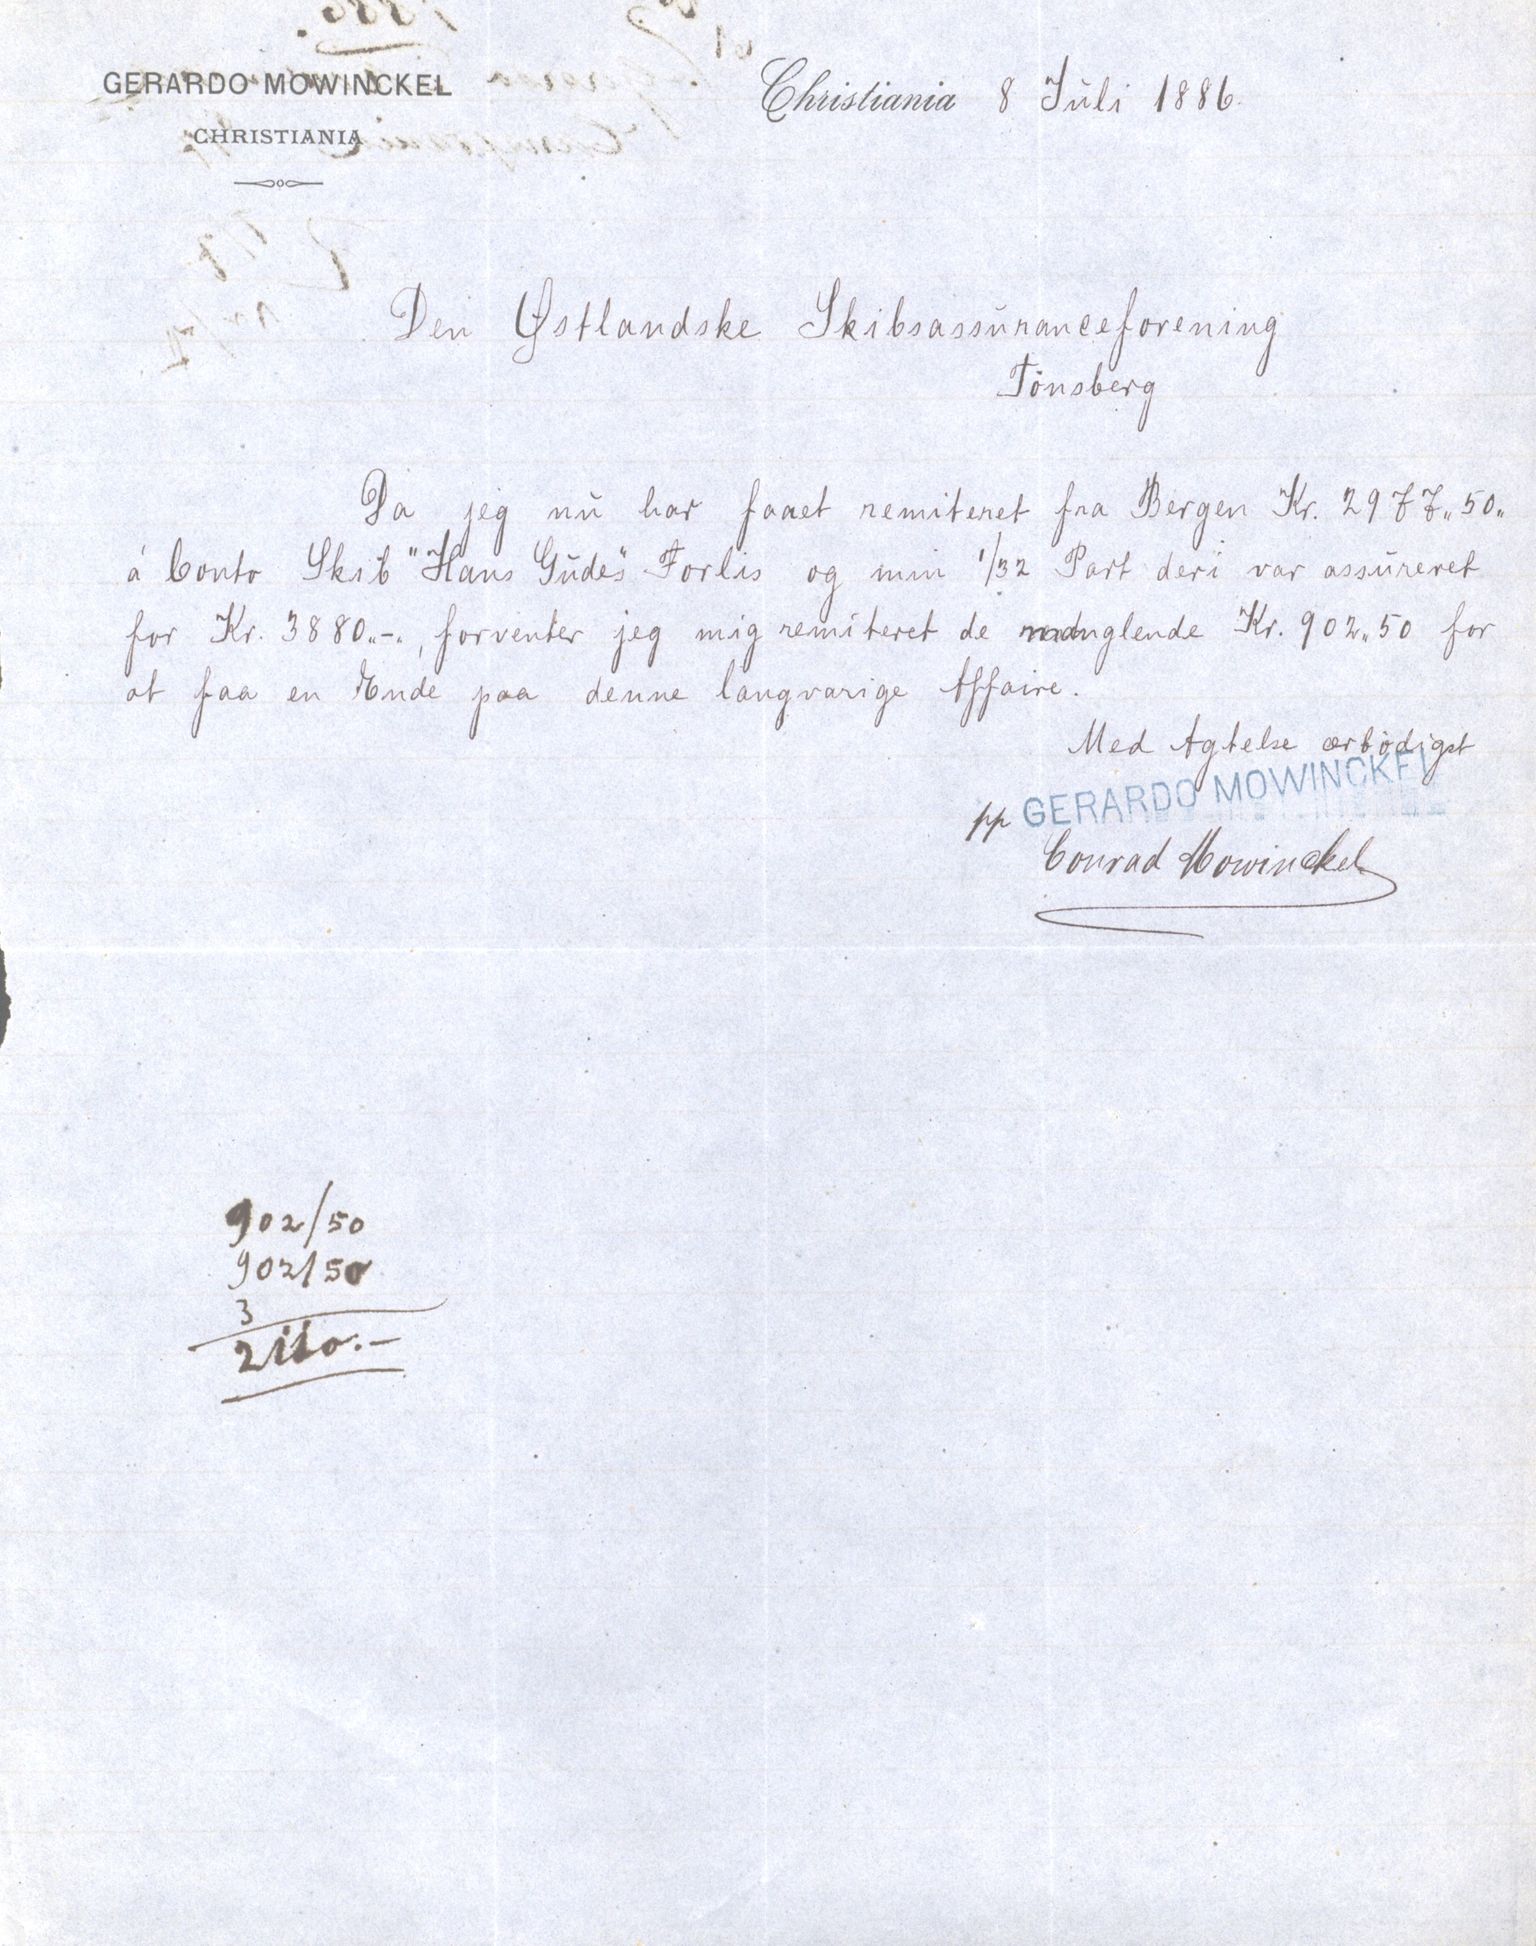 GERARDO MOWINCKEL
CHRISTIANIA
Christiania 8 Juli 1886.
Den Østlandske Skibsassuranceforening
Tönsberg
Da jeg nu har faaet remiteret fra Bergen Kr. 2977„50„
á Conto Skib "Hans Gudes" Forlis og min 1/32 Part deri var assureret
for Kr. 3880„-„, forventer jeg mig remiteret de manglende Kr. 902„50 for
at faa en Ende paa denne langvarige Affaire.
Med Agtelse ærbödigst
pp GERARDO MOWINCKEL
Conrad Mowinckel
902/50
902/50
3